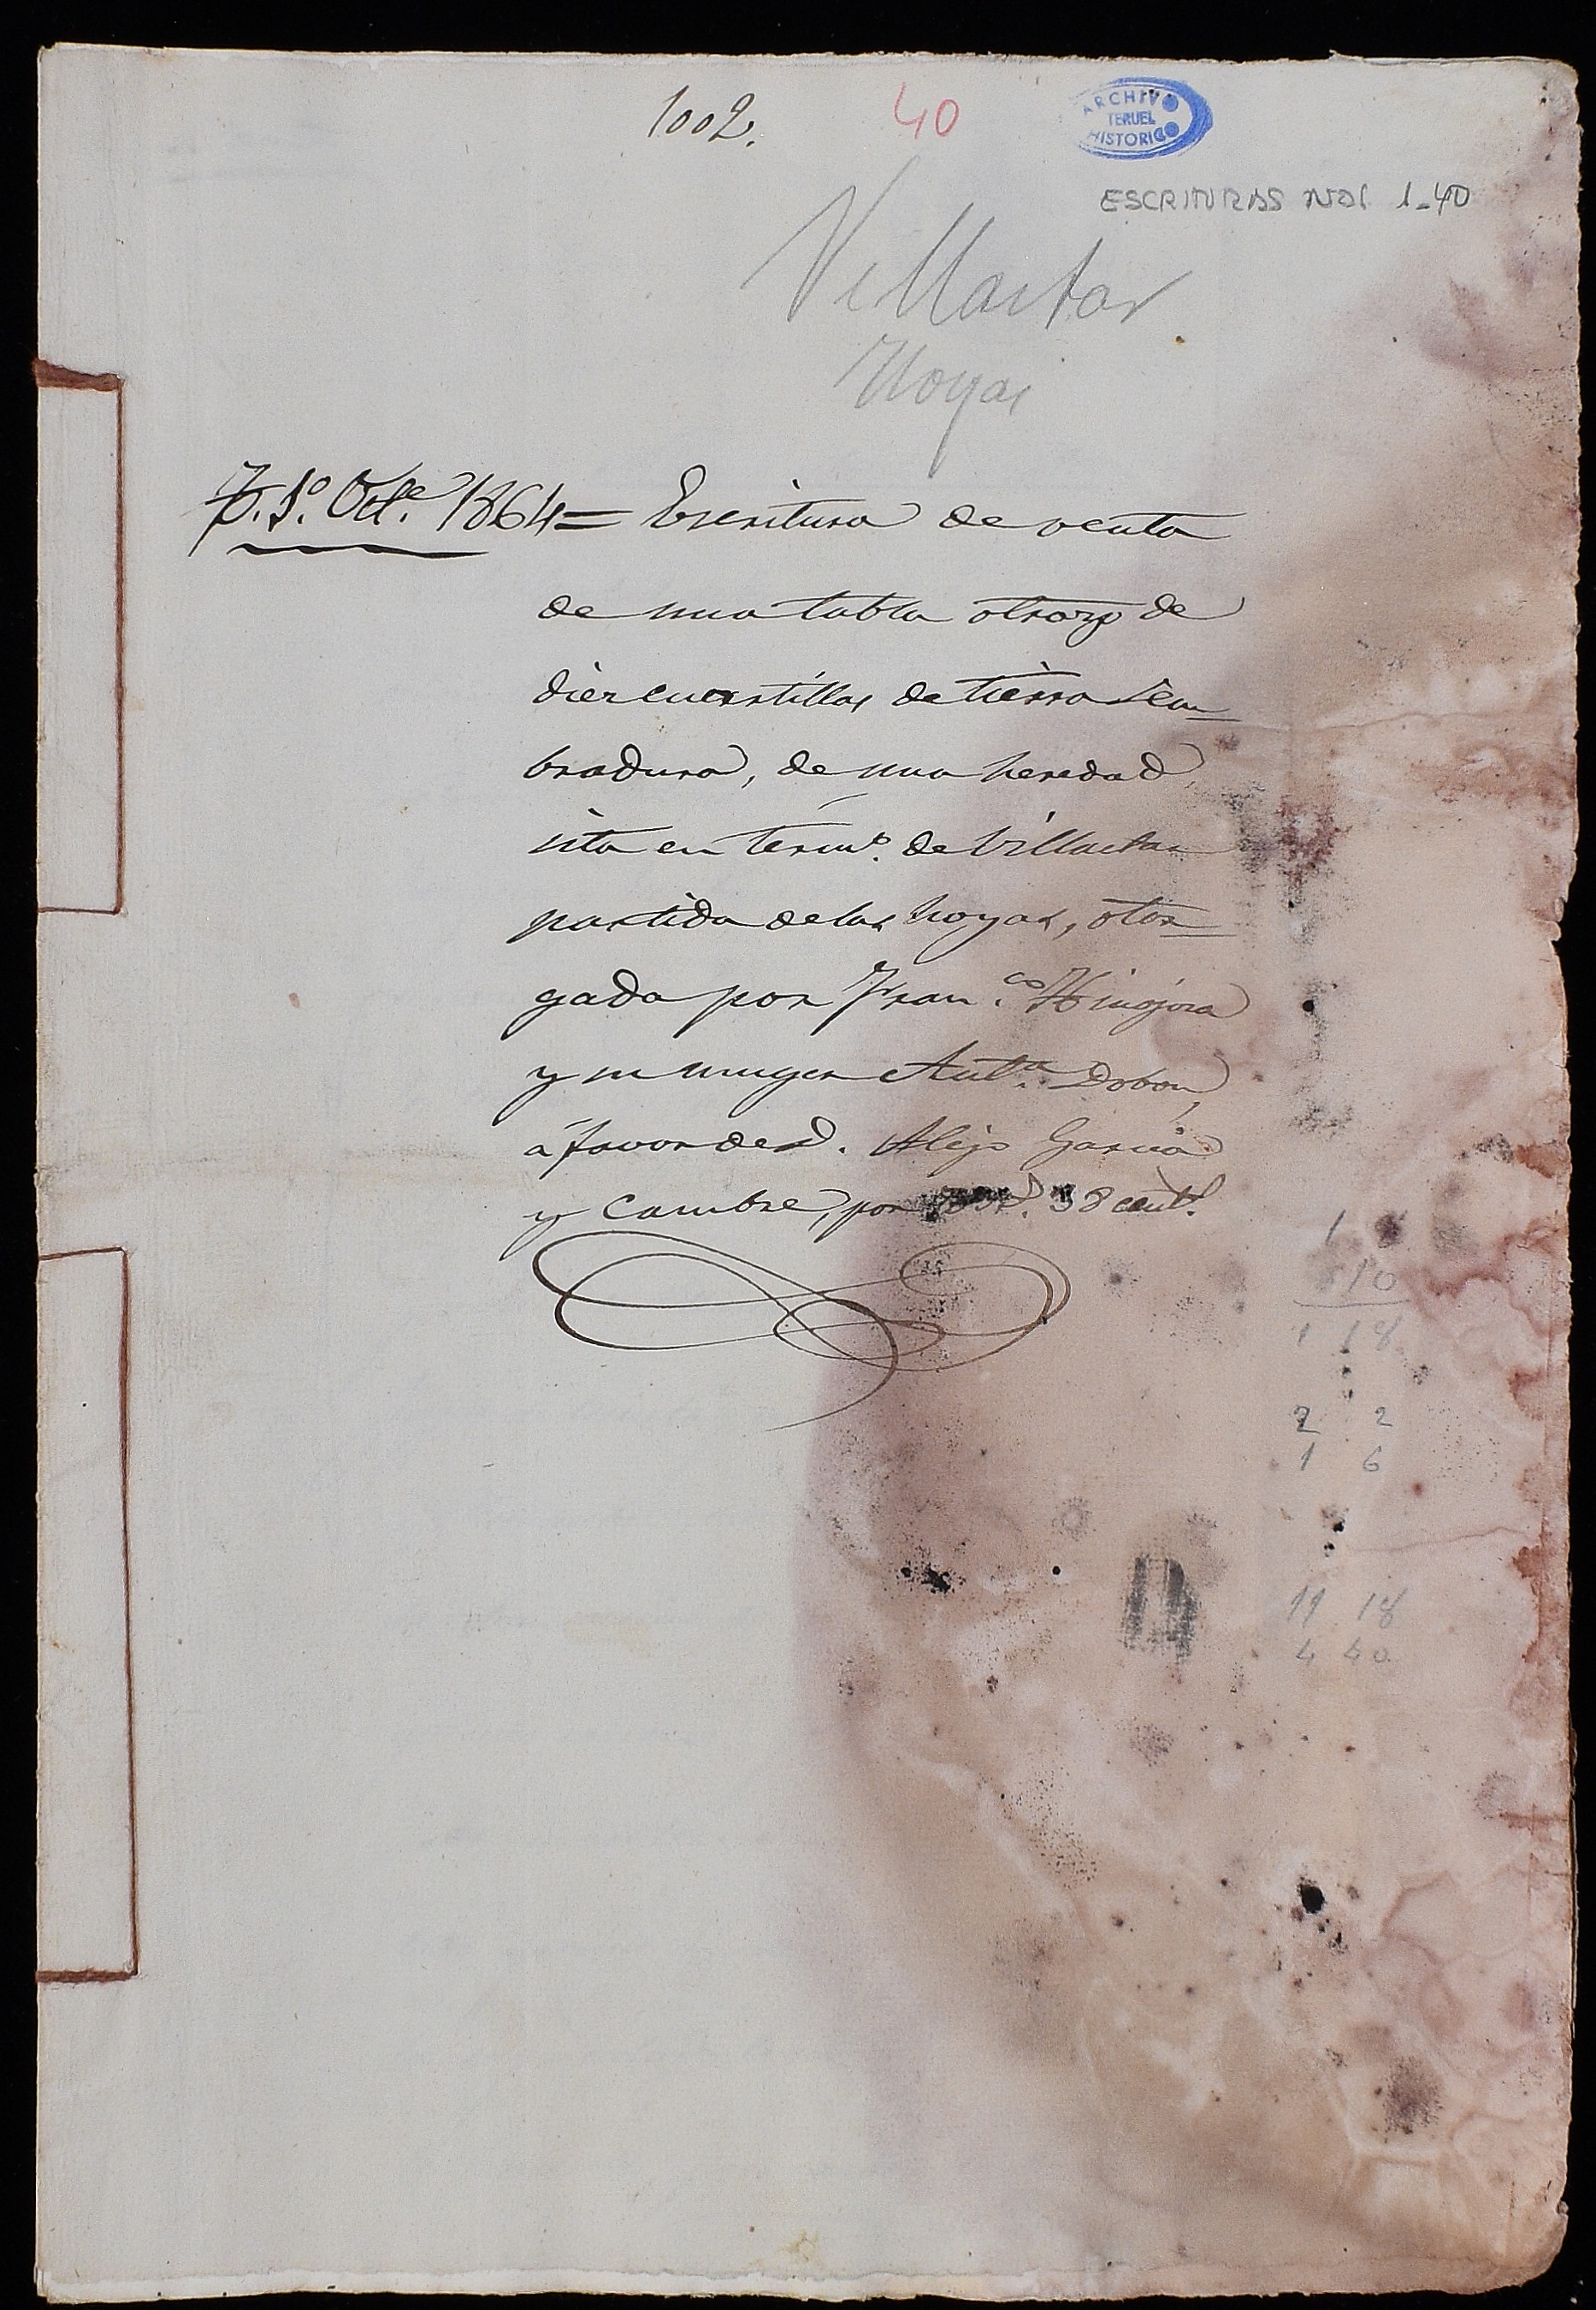 1002.
40
ARCHIVO
TERUEL
HISTORICO
ESCRITURAS NOS 1-40
Villastar
Hoyas
1º. Octe. 1864 = Escritura de venta
de una tabla o trozo de
diez cuartillas de tierra sem-
bradura, de una heredad,
sita en térmº. de Villastar
partida de las hoyas, otor-
gada por Fran.co Hinojosa
y su muger Antª. Dobon,
a favor de D. Alejo Garcia
y Cambre, por 38 cent.
1
10
1 18
2 2
1 6
11 18
4 40